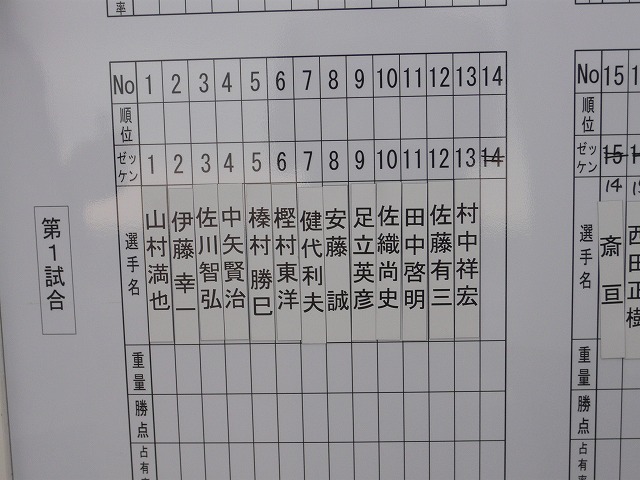 率
第1試合
No 1 2 3 4 5 6 7 8 9 10 11 12 13 14
順位
ゼッケン 1 2 3 4 5 6 7 8 9 10 11 12 13 14
選手名
山村満也
伊藤幸一
佐川智弘
中矢賢治
榛村勝巳
樫村東洋
健代利夫
安藤誠
足立英彦
佐織尚史
田中啓明
佐藤有三
村中祥宏
重量
勝点
占有率
No 15 1
順位
ゼッケン 15 1
14 1
選手名
斎亘
西田正樹
重量
勝点
占有